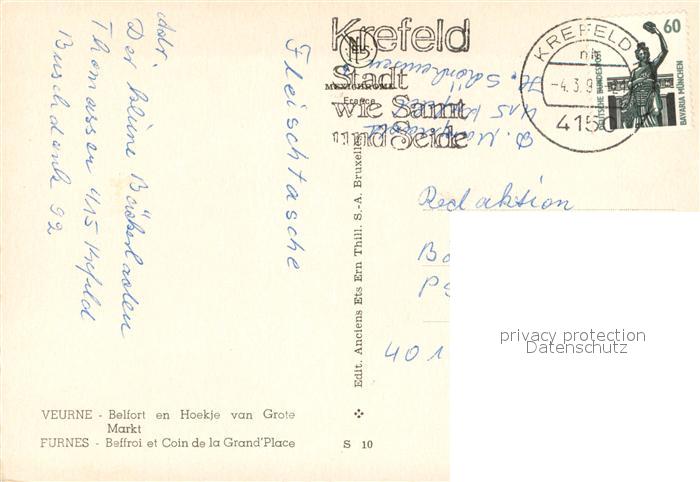 Adr.
Der kleine Bäckerladen
Thomassen 415 Krefeld
Buschdonk 92
Fleischtasche
VEURNE - Belfort en Hoekje van Grote
Markt
FURNES - Beffroi et Coin de la Grand'Place
S 10
Edit. Anciens Ets Ern Thill. S.-A. Bruxelles
MEXICHROME
France
Krefeld
Stadt
wie Samt
und Seide
KREFELD
-4.3.9
4150
60
DEUTSCHE BUNDESPOST
BAVARIA MÜNCHEN
H. Schönhausen
415 Krefeld
Redaktion
401
privacy protection
Datenschutz